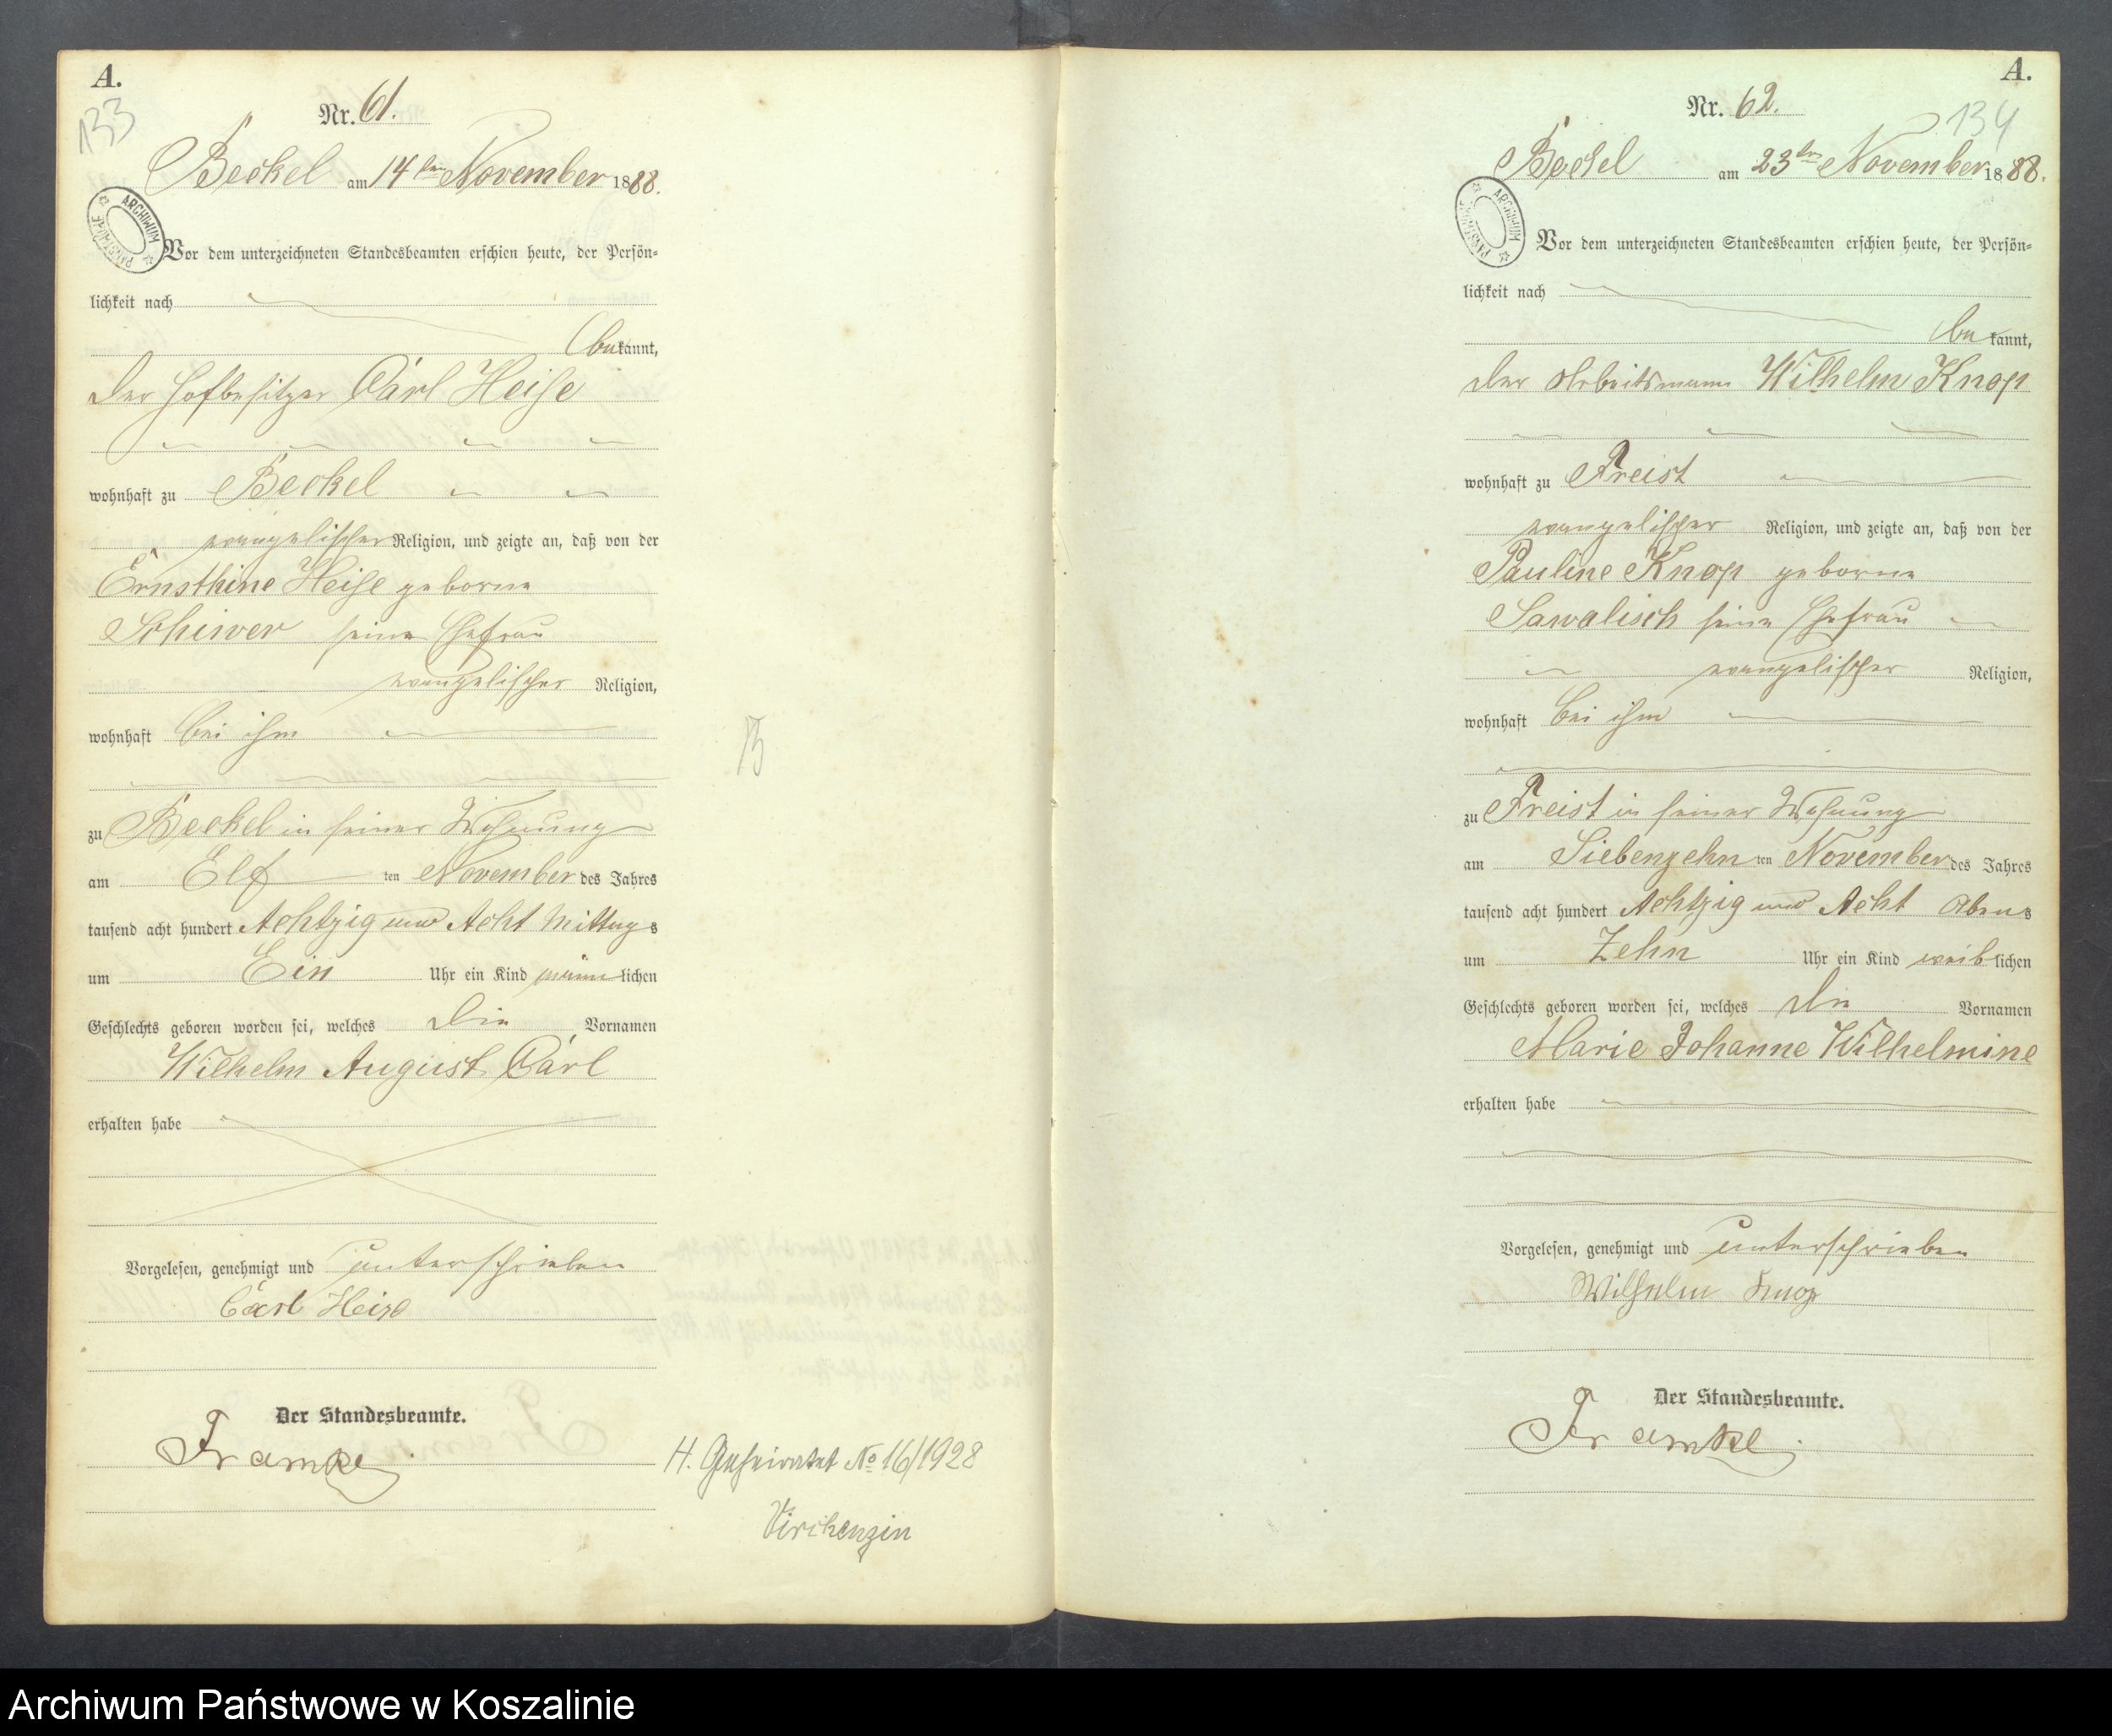 A.
133
Nr. 61.
Beckel am 14ten November 1888.
ARCHIWUM PAŃSTWOWE
Vor dem unterzeichneten Standesbeamten erschien heute, der Persön-
lichkeit nach
bekannt,
der Hofbesitzer Carl Heise
wohnhaft zu Beckel
evangelischer Religion, und zeigte an, daß von der
Ernsthine Heise geborne
Schiwer seine Ehefrau
evangelischer Religion,
wohnhaft bei ihm
zu Beckel in seiner Wohnung
am Elf ten November des Jahres
tausend acht hundert Achtzig und Acht Mittags
um Ein Uhr ein Kind männlichen
Geschlechts geboren worden sei, welches die Vornamen
Wilhelm August Carl
erhalten habe
Vorgelesen, genehmigt und unterschrieben
Carl Heise
Der Standesbeamte.
Framke
H. Geheiratet No 16/1928
Virchenzin
A.
134
Nr. 62.
Beckel am 23ten November 1888.
ARCHIWUM PAŃSTWOWE
Vor dem unterzeichneten Standesbeamten erschien heute, der Persön-
lichkeit nach
bekannt,
der Arbeitsmann Wilhelm Knop
wohnhaft zu Freist
evangelischer Religion, und zeigte an, daß von der
Pauline Knop geborne
Sawalisch seine Ehefrau
evangelischer Religion,
wohnhaft bei ihm
zu Freist in seiner Wohnung
am Siebenzehn ten November des Jahres
tausend acht hundert Achtzig und Acht Abens
um Zehn Uhr ein Kind weiblichen
Geschlechts geboren worden sei, welches die Vornamen
Marie Johanne Wilhelmine
erhalten habe
Vorgelesen, genehmigt und unterschrieben
Wilhelm Knop
Der Standesbeamte.
Framke.
Archiwum Państwowe w Koszalinie